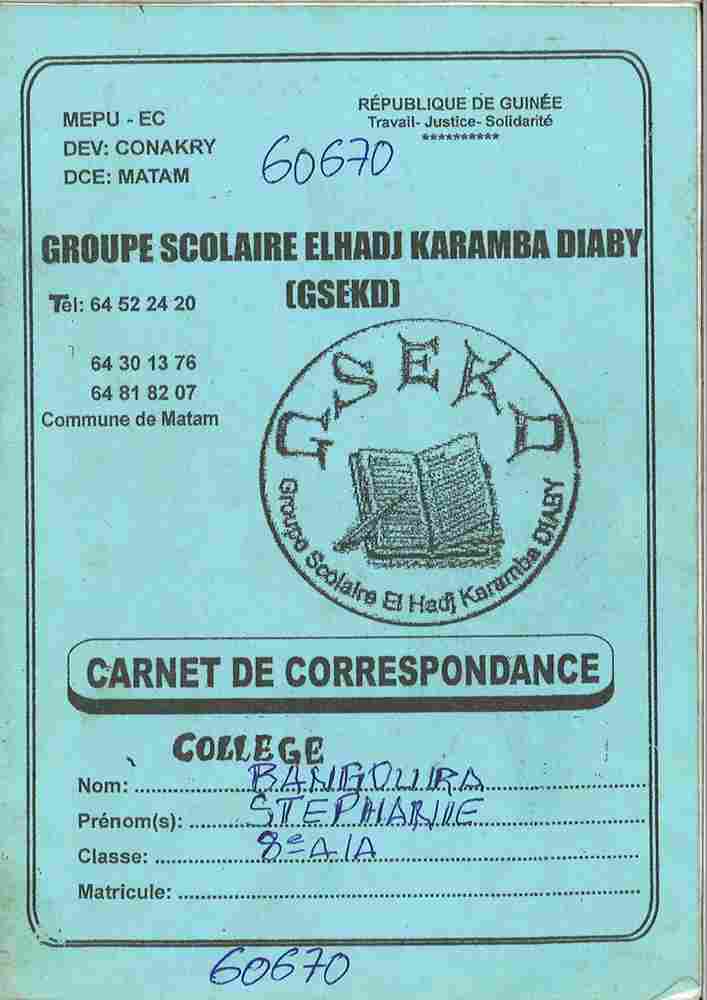 MEPU - EC
DEV: CONAKRY
DCE: MATAM
RÉPUBLIQUE DE GUINÉE
Travail- Justice- Solidarité
**********
60670
GROUPE SCOLAIRE ELHADJ KARAMBA DIABY
(GSEKD)
Tél: 64 52 24 20
64 30 13 76
64 81 82 07
Commune de Matam
GSEKD
Groupe Scolaire El Hadj Karamba DIABY
CARNET DE CORRESPONDANCE
COLLEGE
Nom: BANGOURA
Prénom(s): STEPHANIE
Classe: 8e A/A
Matricule:
60670